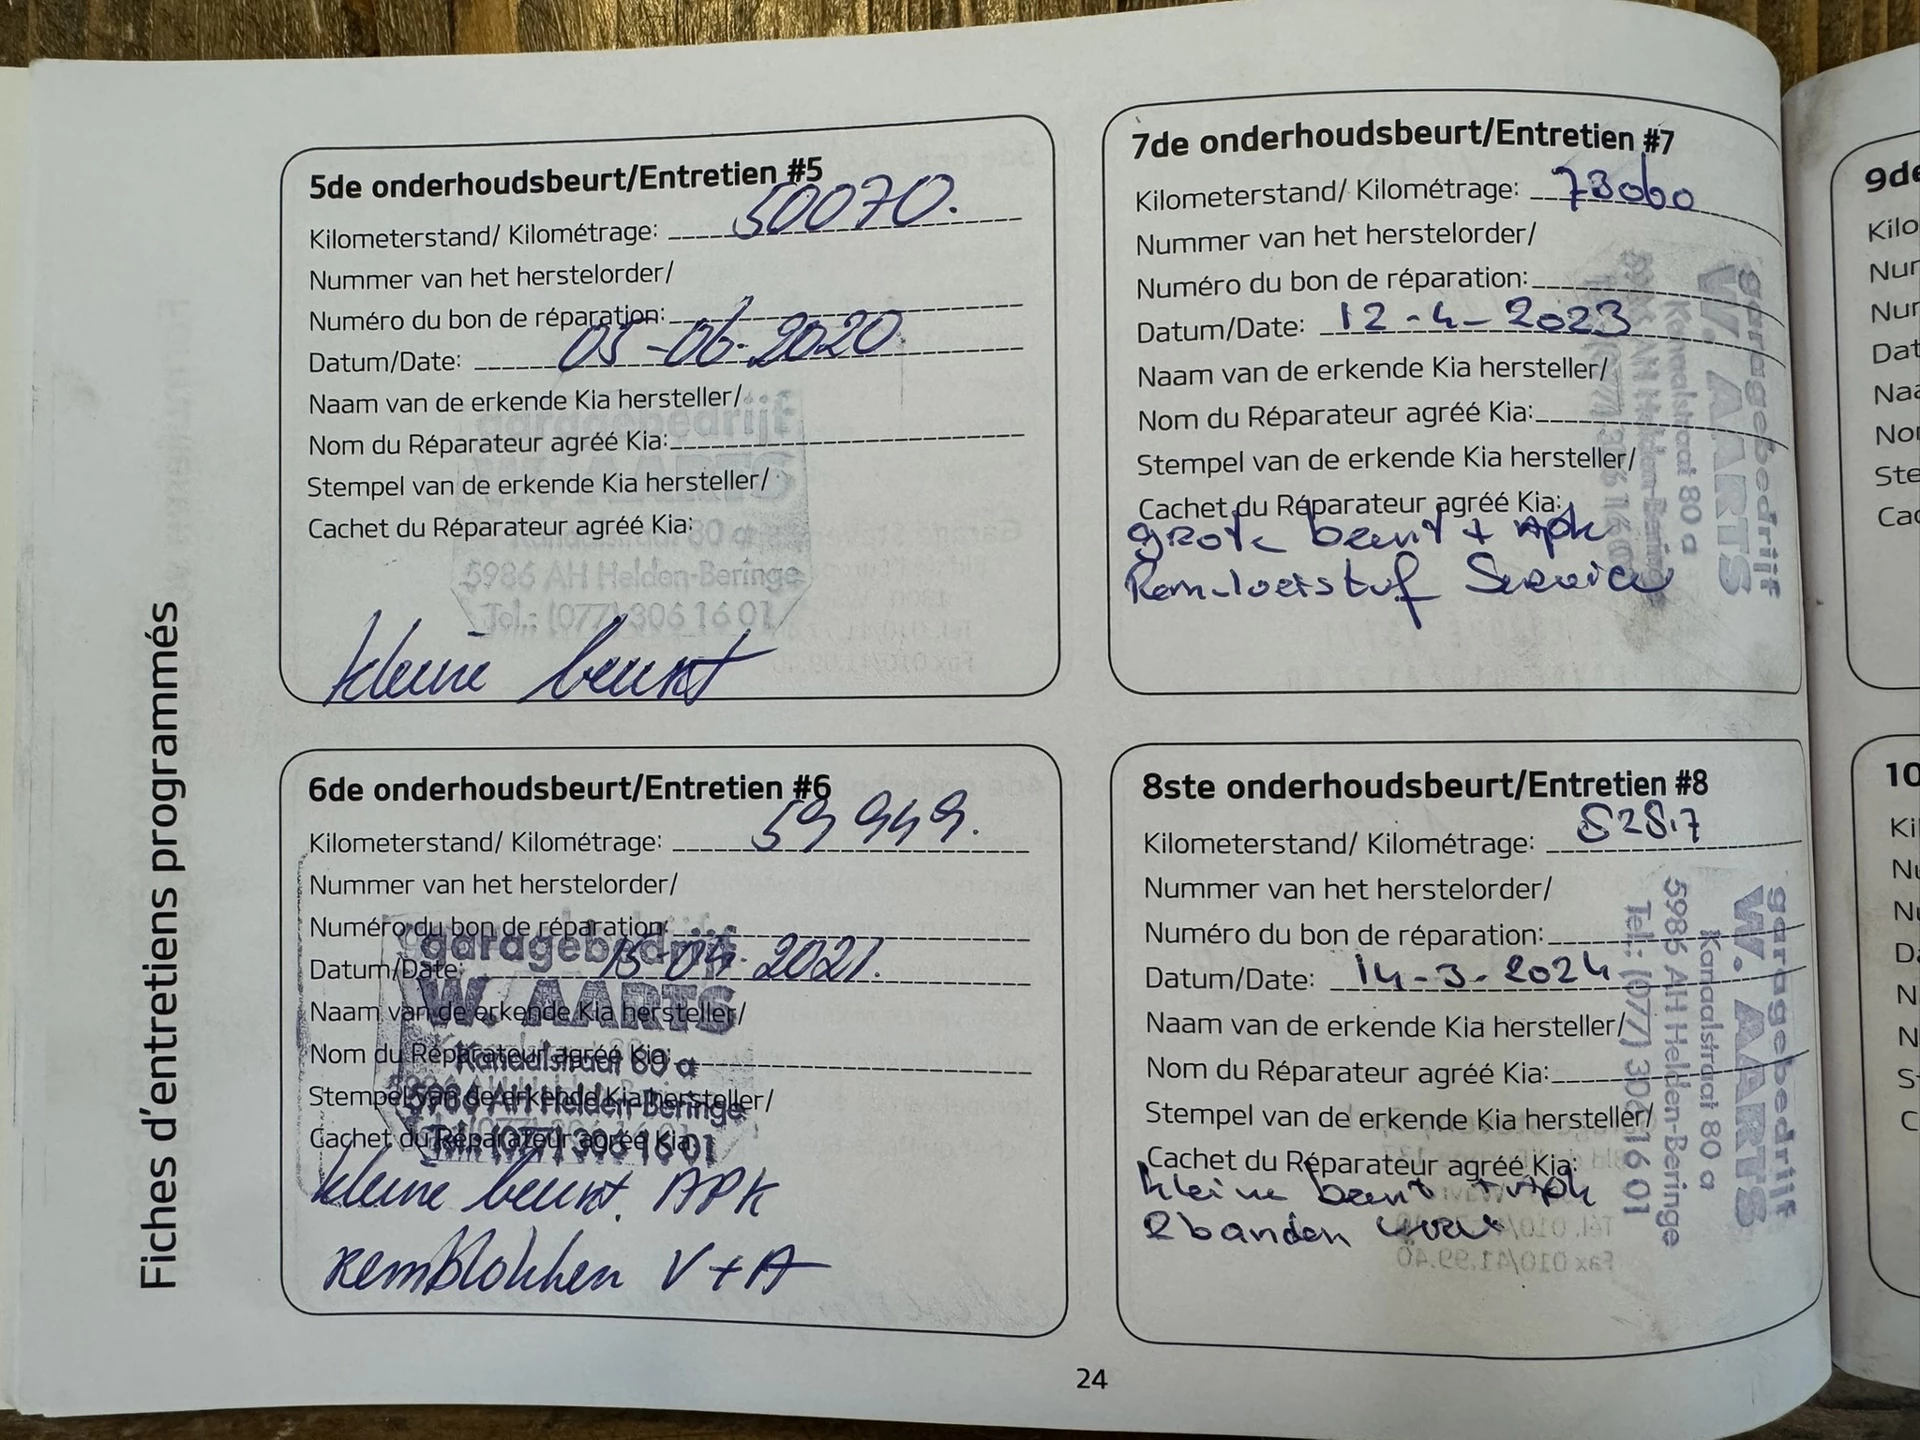 Fiches d'entretiens programmés
5de onderhoudsbeurt/Entretien #5
Kilometerstand/ Kilométrage: 50070.
Nummer van het herstelorder/
Numéro du bon de réparation:
Datum/Date: 05-06-2020
Naam van de erkende Kia hersteller/
Nom du Réparateur agréé Kia:
Stempel van de erkende Kia hersteller/
Cachet du Réparateur agréé Kia:
garagebedrijf
W. AARTS
Kanaalstraat 80 a
5986 AH Helden-Beringe
Tel.: (077) 306 16 01
kleine beurt
6de onderhoudsbeurt/Entretien #6
Kilometerstand/ Kilométrage: 59949.
Nummer van het herstelorder/
Numéro du bon de réparation:
Datum/Date: 15-04-2021.
Naam van de erkende Kia hersteller/
Nom du Réparateur agréé Kia:
Stempel van de erkende Kia hersteller/
Cachet du Réparateur agréé Kia:
garagebedrijf
W. AARTS
Kanaalstraat 80 a
5986 AH Helden-Beringe
Tel.: (077) 306 16 01
kleine beurt. APK
Remblokken V+A
7de onderhoudsbeurt/Entretien #7
Kilometerstand/ Kilométrage: 73060
Nummer van het herstelorder/
Numéro du bon de réparation:
Datum/Date: 12-4-2023
Naam van de erkende Kia hersteller/
Nom du Réparateur agréé Kia:
Stempel van de erkende Kia hersteller/
Cachet du Réparateur agréé Kia:
grote beurt + Apk
Remvloeistof Service
garagebedrijf
W. AARTS
Kanaalstraat 80 a
5986 AH Helden-Beringe
Tel.: (077) 306 16 01
8ste onderhoudsbeurt/Entretien #8
Kilometerstand/ Kilométrage:
Nummer van het herstelorder/
Numéro du bon de réparation:
Datum/Date: 14-3-2024
Naam van de erkende Kia hersteller/
Nom du Réparateur agréé Kia:
Stempel van de erkende Kia hersteller/
Cachet du Réparateur agréé Kia:
kleine beurt + Apk
2 banden voor
garagebedrijf
W. AARTS
Kanaalstraat 80 a
5986 AH Helden-Beringe
Tel.: (077) 306 16 01
24
9de
Kilo
10